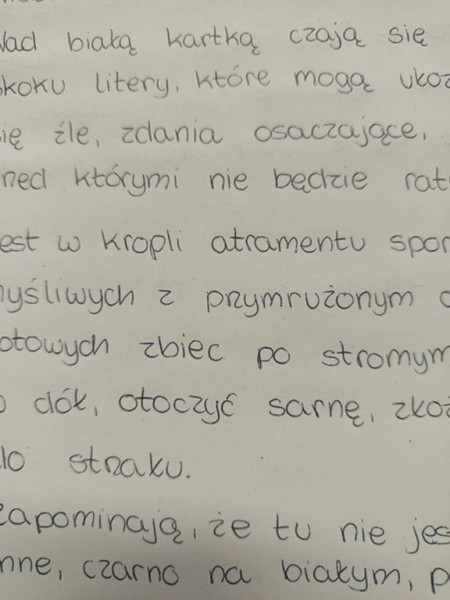 Nad białą kartką czają się
skoku litery, które mogą ułoż
ię źle, zdania osaczające,
rzed którymi nie będzie rat
est w kropli atramentu spor
myśliwych z przymrużonym o
otowych zbiec po stromym
o dół, otoczyć sarnę, złoż
do strzału.
zapominają, że tu nie jes
nne, czarno na białym, p